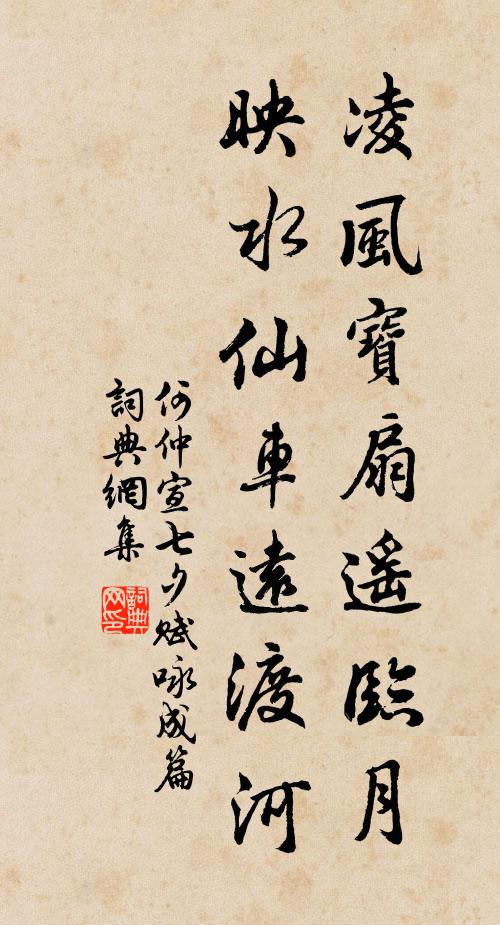 凌風寶扇遥臨月
映水仙車遠渡河
何仲宣七夕賦咏成篇
詞典網集
詞典网印